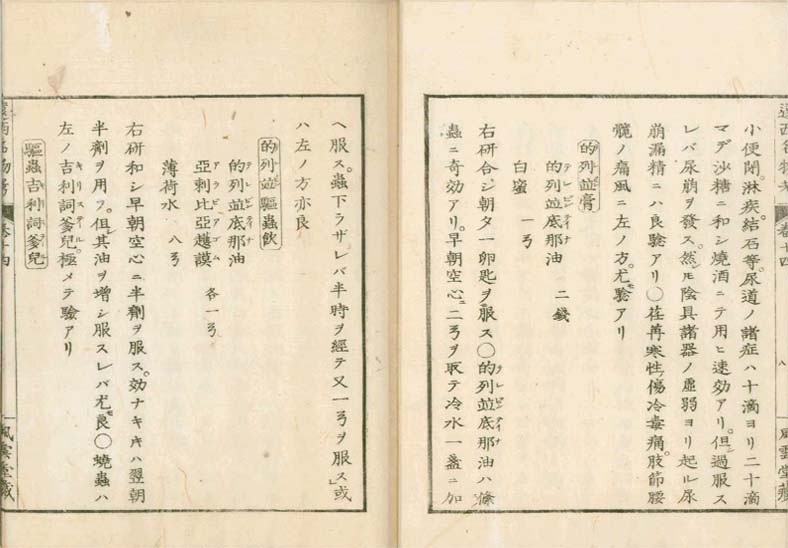 遠西名物考 巻十四 八 風雲堂蔵
小便閉。淋疾。結石等。尿道ノ諸症ハ十滴ヨリ二十滴
マデ沙糖ニ和シ焼酒ニテ用ヒ速効アリ。但シ過服ス
レバ尿崩ヲ發ス。然レモ陰具諸器ノ虚弱ヨリ起ル尿
崩漏精ニハ良驗アリ〇荏苒寒性傷冷毒痛。肢節腰
髖ノ痛風ニ左ノ方。尤モ驗アリ
的列並膏
的列並底那油 二錢
白蜜 一ヲ
右研合シ朝夕一卵匙ヲ服ス〇的列並底那油ハ條
蟲ニ奇効アリ。早朝空心ニ二ヲヲ取テ冷水一盞ニ加
ヘ服ス。蟲下ラザレバ半時ヲ經テ又一ヲヲ服ス」或
ハ左ノ方亦良
的列並驅蟲飲
的列並底那油
亞剌比亞護謨 各一ヲ
薄荷水 八ヲ
右研和シ早朝空心ニ半劑ヲ服ス。効ナキ片ハ翌朝
半劑ヲ用フ。但シ其油ヲ増シ服スレバ尤モ良〇蟯蟲ハ
左ノ吉利詞爹兒。極メテ驗アリ
驅蟲吉利詞爹兒
遠西名物考 巻十四 風雲堂蔵